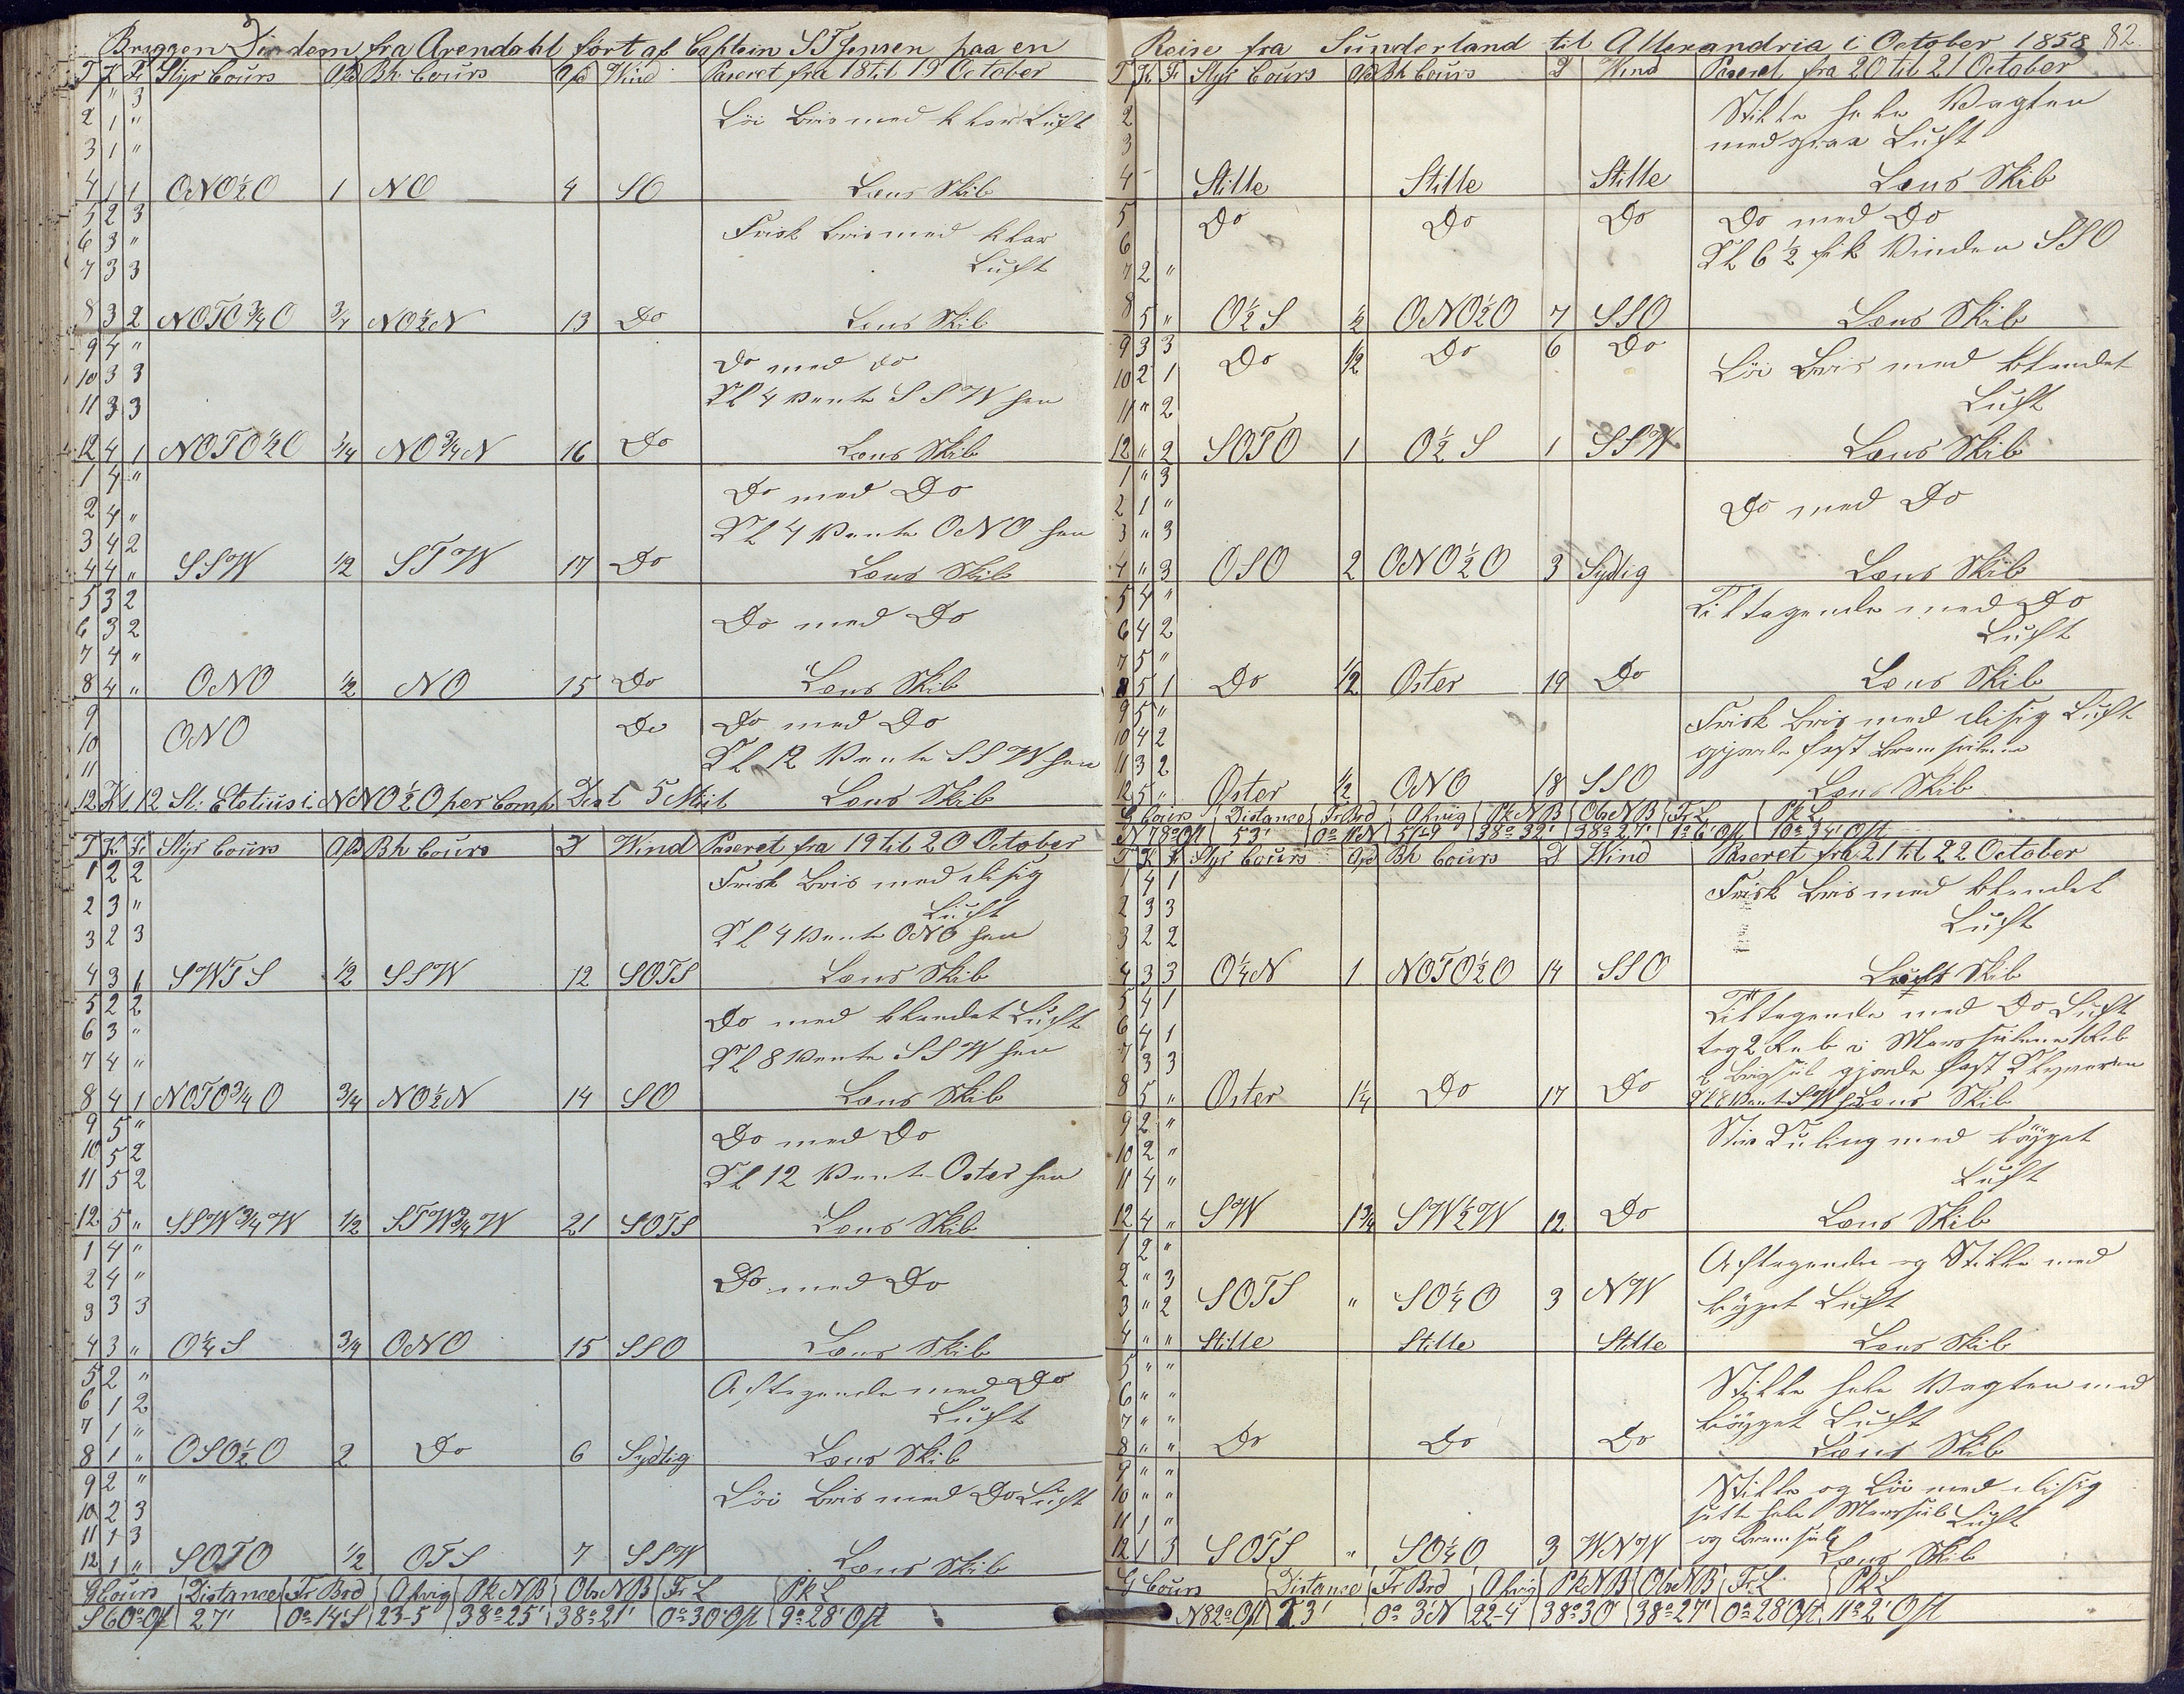 Briggen Diadem fra Arendahl fört af Captein S T Jensen paa en
T K Fv Styr Cours Afd Bh Cours Afd Wind Paseret fra 18 til 19 October
1 " 3
2 1 " Löi Bris med klar Luft
3 1 "
4 1 1 ONO½O 1 NO 4 SO Læns Skib
5 2 3
6 3 " Frisk Bris med klar
7 3 3 Luft
8 3 2 NOTO¾O ¾ NO½N 13 Do Læns Skib
9 4 " Do med do
10 3 3 Kl 4 Vente SSW hen
11 3 3
12 4 1 NOTO½O ¾ NO¾N 16 Do Læns Skib
1 4 " Do med Do
2 4 "
3 4 2 Kl 4 Vente ONO hen
4 4 " SSW ½ STW 17 Do Læns Skib
5 3 2
6 3 2 Do med Do
7 4 "
8 4 " ONO ½ NO 15 Do Læns Skib
9 Do Do med Do
10 ONO
11 Kl 12 Vente SSW hen
12 Kl 12 St. Eletius i NNO½O per Comp Dist 5 Miil Læns Skib
T K Fv Styr Cours Afd Bh Cours D Wind Paseret fra 19 til 20 October
1 2 2 Frisk Bris med disig
2 3 " Luft
3 2 3 Kl 4 Vente ONO hen
4 3 1 SWTS ½ SSW 12 SOTS Læns Skib
5 2 2 Do med blandet Luft
6 3 "
7 4 " Kl 8 Vente SSW hen
8 4 1 NOTO¾O ¾ NO½N 14 SO Læns Skib
9 5 " Do med Do
10 5 2
11 5 2 Kl 12 Vente Oster hen
12 5 " SSW¾W ½ STW¾W 21 SOTS Læns Skib
1 4 "
2 4 " Do med Do
3 3 3
4 3 " O¼S ¾ ONO 15 SSO Læns Skib
5 2 " Aftagende med Do
6 1 2 Luft
7 1 "
8 1 " OSO½O 2 Do 6 Sydlig Læns Skib
9 2 " Löi Bris med Do Luft
10 2 3
11 1 3
12 1 " SOTO ½ OTS 7 SSW Læns Skib
G Cours Distance Fr Brd Afvig Pk NB Obs NB Fr L Pk L
S 60° Ost 27' 0° 14' S 23-5 38° 25' 38° 21' 0° 30' Ost 9° 28' Ost
Reise fra Sunderland til Allexandria i October 1858 82
T K Fv Styr Cours Afd Bh Cours D Wind Paseret fra 20 til 21 October
1 Stille hele Vagten
2
3 med graa Luft
4 Stille Stille Stille Læns Skib
5 Do Do Do Do med Do
6 Kl 6½ fik Vinden SSO
7 2 "
8 5 " O½S ½ ONO½O 7 SSO Læns Skib
9 3 3 Do ½ Do 6 Do
10 2 1 Löi Bris med blandet
11 " 2 Luft
12 " 2 SOTO 1 O½S 1 SSW Læns Skib
1 " 3
2 1 " Do med Do
3 " 3
4 " 3 OSO 2 ONO½O 3 Sydlig Læns Skib
5 4 " Tiltagende med Do
6 4 2 Luft
7 5 "
8 5 1 Do ½ Oster 19 Do Læns Skib
9 5 " Frisk Bris med disig Luft
10 4 2 gjorde fast Bramseilene
11 3 2
12 5 " Oster ½ ONO 18 SSO Læns Skib
G Cours Distance Fr Brd Afvig Pk NB Obs NB Fr L Pk L
N 78° Ost 53' 0° 11' N 51-9 38° 32' 38° 27' 1° 6' Ost 10° 34' Ost
T K Fv Styr Cours Afd Bh Cours D Wind Paseret fra 21 til 22 October
1 4 1 Frisk Bris med blandet
2 3 3 Luft
3 2 2
4 3 3 O¼N 1 NOTO½O 14 SSO Skib
5 4 1 Tiltagende med Do Luft
6 4 1 tog 2 Reb i Mersseilene 1 Reb
7 3 3 i Brigseil gjorde fast Klyveren
8 5 " Oster 1¼ Do 17 Do Kl 8 Vente SW hen Læns Skib
9 2 " Stiv Kuling med böyget
10 2 "
11 4 " Luft
12 4 " SW 1¾ SW½W 12 Do Læns Skib
1 2 " Aftagende og Stille med
2 " 3
3 " 2 SOTS " SO¼O 3 NW böyget Luft
4 " " Stille Stille Stille Læns Skib
5 " " Stille hele Vagten med
6 " "
7 " " böyget Luft
8 " " Do Do Do Læns Skib
9 " " Stille og Löi med disig
10 " " satte hele Mersseil Luft
11 1 " og Bramseil
12 1 3 SOTS " SO¼O 3 WNW Læns Skib
G Cours Distance Fr Brd Afvig Pk NB Obs NB Fr L Pk L
N 82° Ost 23' 0° 3' N 22-4 38° 30' 38° 27' 0° 28' Ost 11° 2' Ost